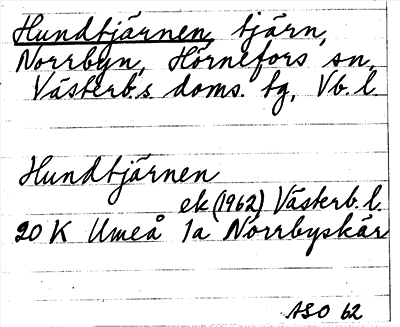 Hundtjärnen, tjärn,
Norrbyn, Hörnefors sn,
Västerb:s doms. tg, Vb. l.
Hundtjärnen
ek (1962) Västerb. l.
20 K Umeå 1a Norrbyskär
ASO 62